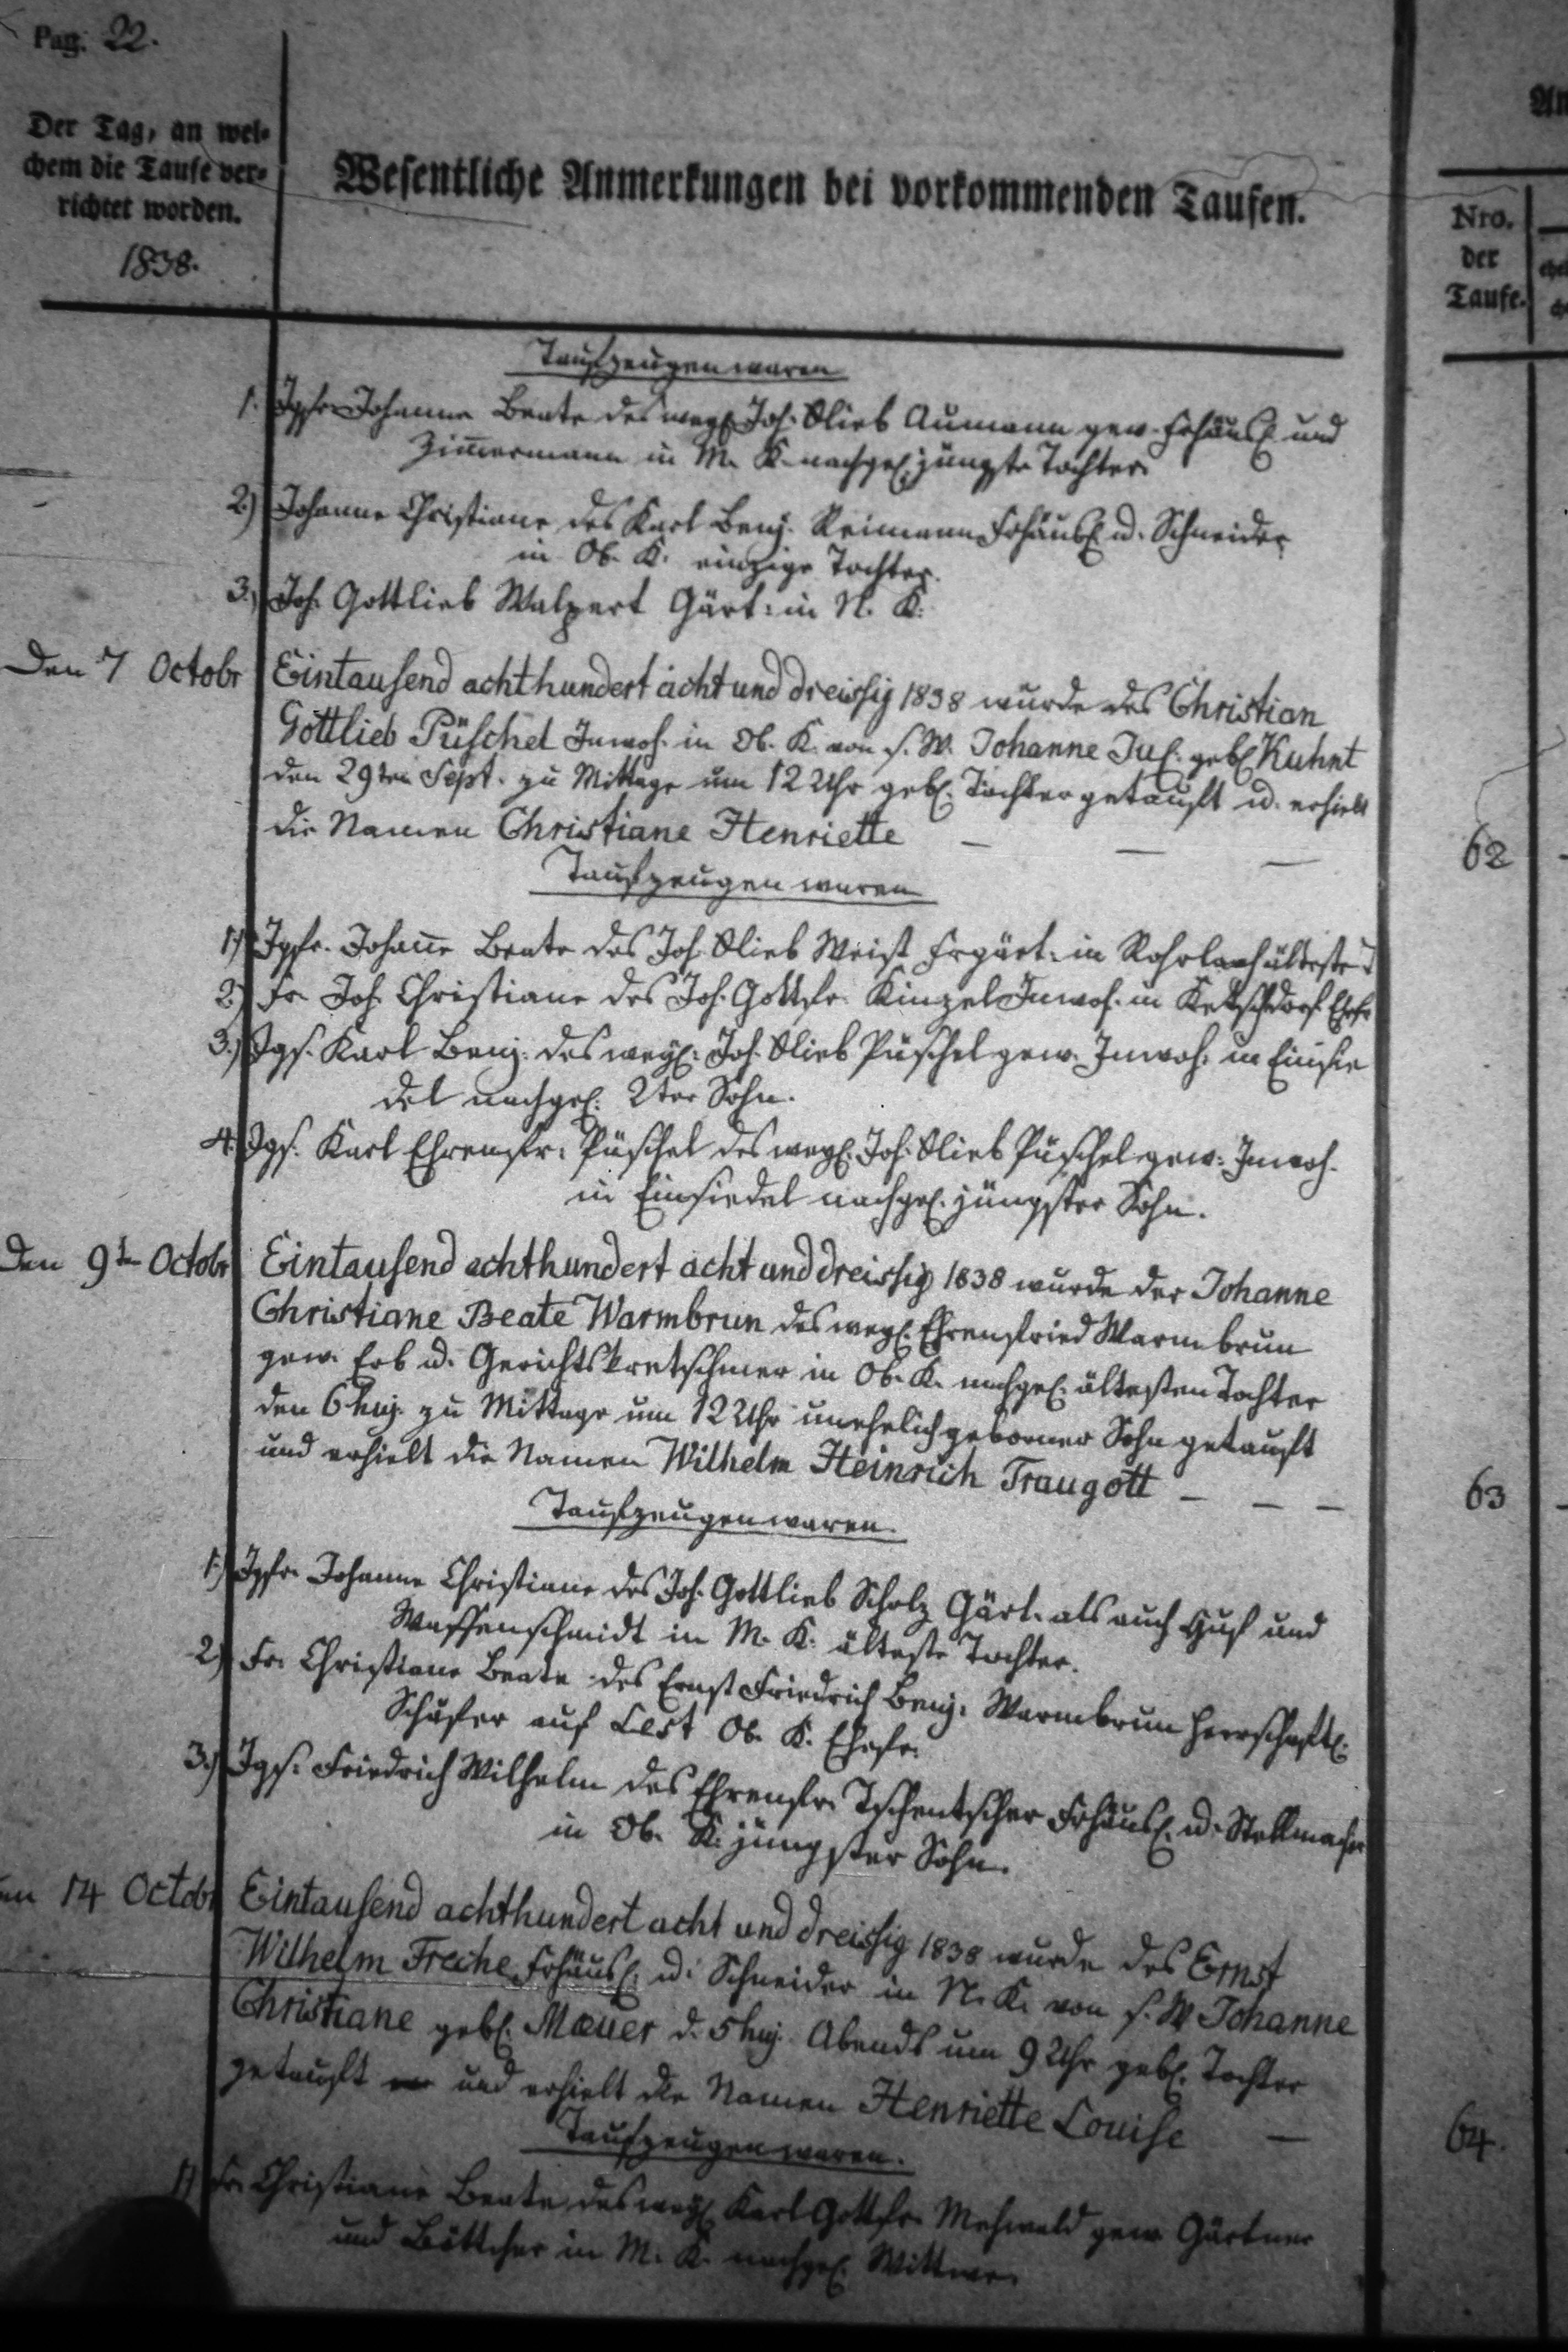 Pag. 22.
Der Tag, an wel-
chem die Taufe ver-
richtet worden.
1838.
Wesentliche Anmerkungen bei vorkommenden Taufen.
Nro.
der
Taufe.
Taufzeugen waren
1. Jgfr Johanne Beate des weyl. Joh. Glieb Aumann gew. Frhäusl. und
Zimmermann in M. K. nachgel. jüngste Tochter.
2.) Johanne Christiane des Karl Benj. Reimann Frhäusl. u. Schneider
in Ob. K. einzige Tochter.
3.) Joh. Gottlieb Walpert Gärt: in N. K.
Den 7 Octobr Eintausend achthundert acht und dreissig 1838 wurde des Christian
Gottlieb Püschel Inwoh. in Ob. K. von s. W. Johanne Jul. gebl. Kuhnt
den 29ten Sept. zu Mittage um 12 Uhr gebl. Tochter getauft u. erhielt
die Namen Christiane Henriette — — —
62
Taufzeugen waren
1.) Jgfr. Johanne Beate des Joh. Glieb Weist Frgärt: in Rohrlach älteste T
2.) Fr. Joh. Christiane des Joh. Gottfr. Kinzel Inwoh. in Ketschdorf Ehefr
3.) Jgs. Karl Benj. des weyl. Joh. Glieb Püschel gew. Inwoh. in Einsie
del nachgel. 2ter Sohn.
4. Jgs. Karl Ehrenfr: Püschel des weyl. Joh. Glieb Püschel gew: Inwoh.
in Einsiedel nachgel. jüngster Sohn.
Den 9ten Octobr Eintausend achthundert acht und dreissig 1838 wurde der Johanne
Christiane Beate Warmbrun des weyl. Ehrenfried Warmbrun
gew. Erb u. Gerichtskretschmer in Ob. K. nachgel. ältesten Tochter
den 6 huj. zu Mittage um 12 Uhr unehelich geborner Sohn getauft
und erhielt die Namen Wilhelm Heinrich Traugott — — —
63
Taufzeugen waren.
1.) Jgfr. Johanne Christiane des Joh. Gottlieb Scholz Gärt. als auch Huf und
Waffenschmidt in M. K. älteste Tochter.
2.) Fr. Christiane Beate des Ernst Friedrich Benj. Warmbrun herrschaftl.
Schäfer auf Lest Ob. K. Ehefr.
3.) Jgs. Friedrich Wilhelm des Ehrenfr. Tschentscher Frhäusl. u. Stellmacher
in Ob. K. jüngster Sohn.
14 Octobr Eintausend achthundert acht und dreissig 1838 wurde des Ernst
Wilhelm Freche Frhäusl. u. Schneider in N. K. von s. W Johanne
Christiane gebl. Mauer d. 5 huj. Abends um 9 Uhr gebl. Tochter
getauft und erhielt die Namen Henriette Louise —
64.
Taufzeugen waren.
1) Fr. Christiane Beate des weyl. Karl Gottfr. Mehwald gew. Gärtner
und Böttcher in M. K. nachgel. Wittwe.